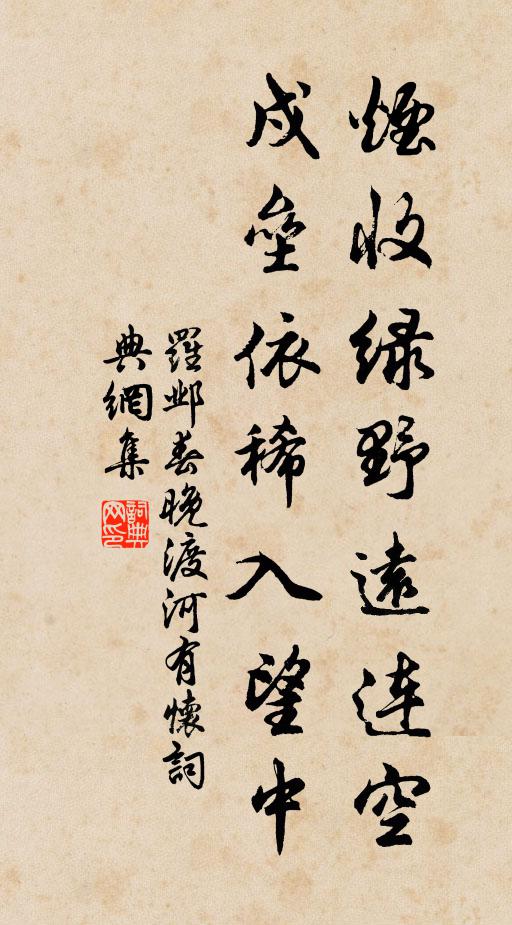 煙收綠野遠連空
戍壘依稀入望中
羅鄴春晚渡河有懷詞
典網集
詞典网印